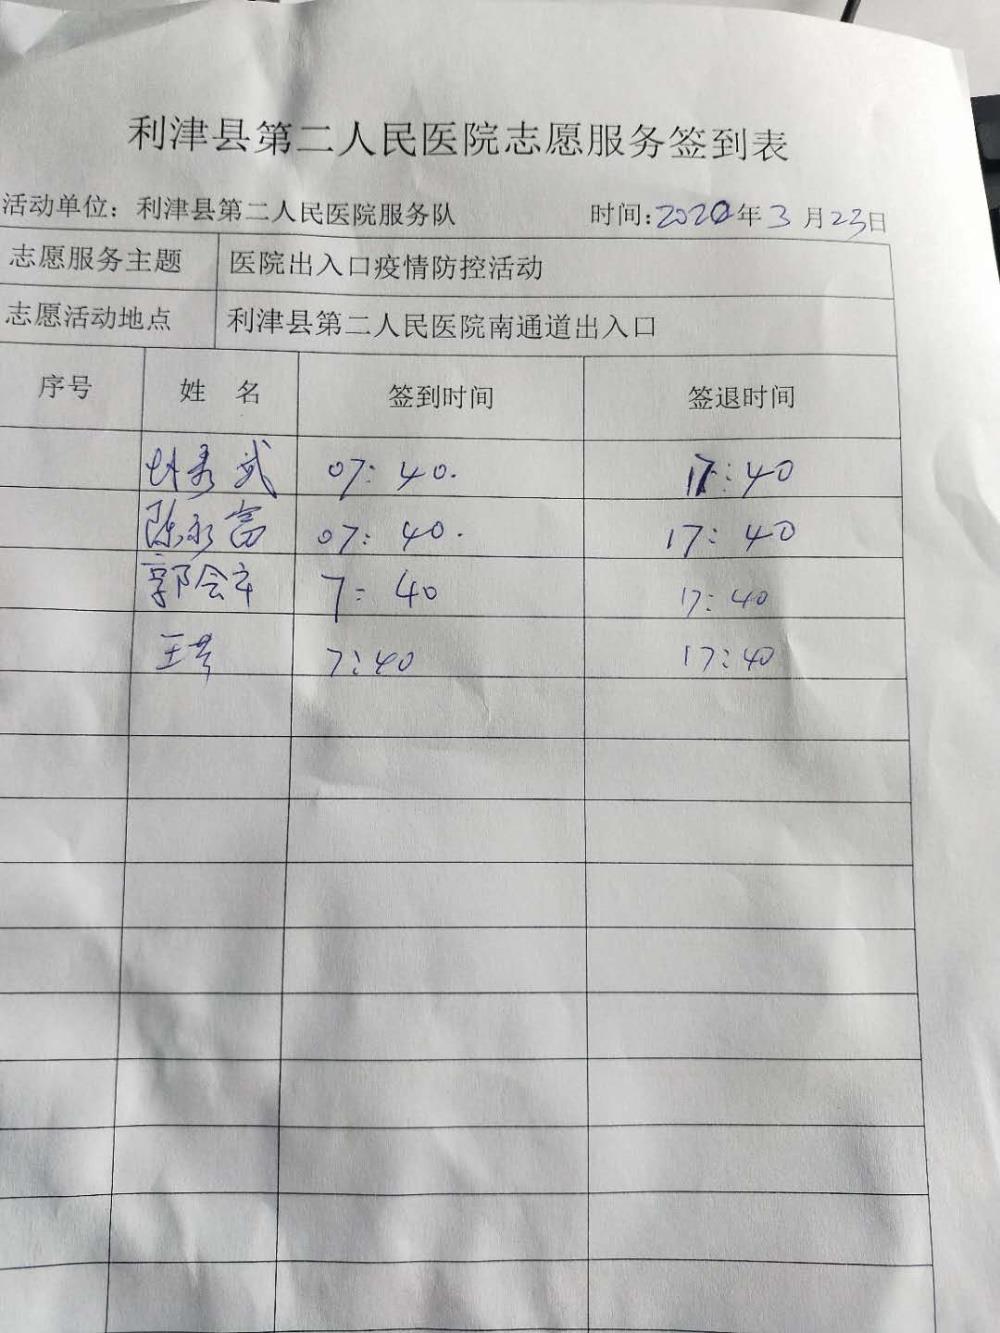 利津县第二人民医院志愿服务签到表
活动单位：利津县第二人民医院服务队 时间：2020年3月23日
志愿服务主题 医院出入口疫情防控活动
志愿活动地点 利津县第二人民医院南通道出入口
序号 姓 名 签到时间 签退时间
武 07：40. 17：40
陈永富 07：40. 17：40
郭会 7：40 17：40
王 7：40 17：40